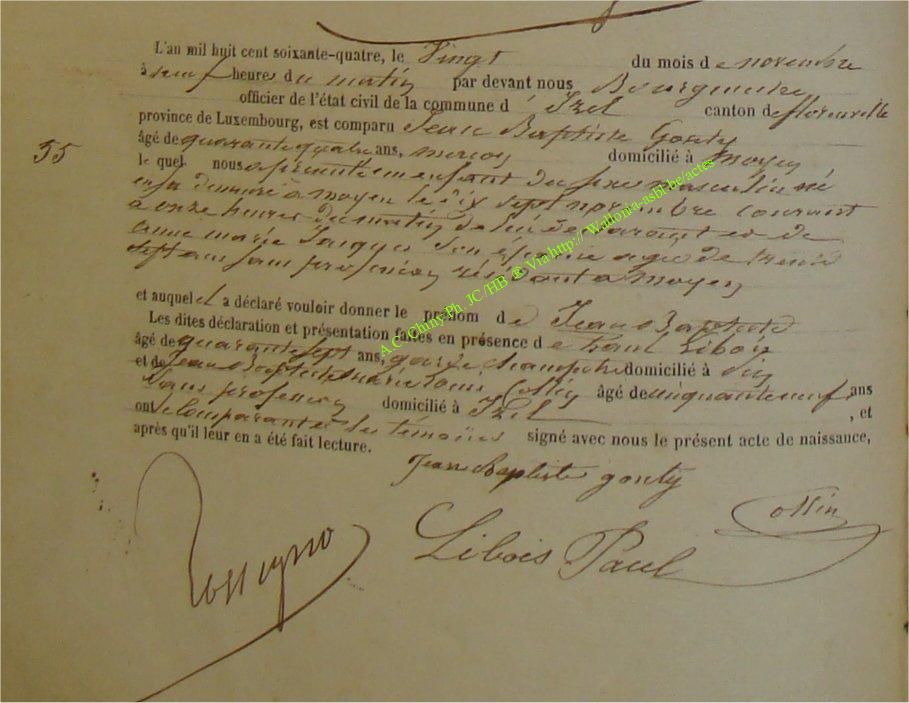 L'an mil huit cent soixante-quatre, le Vingt du mois de novembre
à neuf heures du matin par devant nous Bourgmestre
officier de l'état civil de la commune d' Izel canton de florenville
province de Luxembourg, est comparu Jean Baptiste Gonty
55
âgé de quarante quatre ans, domicilié à Moyen
le quel nous a présenté un enfant du sexe masculin né
en sa demeure à moyen le dix sept novembre courant
à onze heures du matin de lui déclarant et de
anne marie son épouse agée de trente
sept ans sans profession résidant à Moyen
et auquel il a déclaré vouloir donner le prénom de Jean Baptiste
Les dites déclaration et présentation faites en présence de Paul Libois
âgé de quarante sept ans, garde champêtre domicilié à Izel
et de Jean Baptiste marie Collin âgé de cinquante neuf ans
sans profession domicilié à Izel, et
ont le comparant et les témoins signé avec nous le présent acte de naissance,
après qu'il leur en a été fait lecture.
Jean Baptiste gonty
Collin
Libois Paul
Rossigno
A.C. Chiny Ph. JC /HB ® Via http:// Wallonia-asbl.be/actes